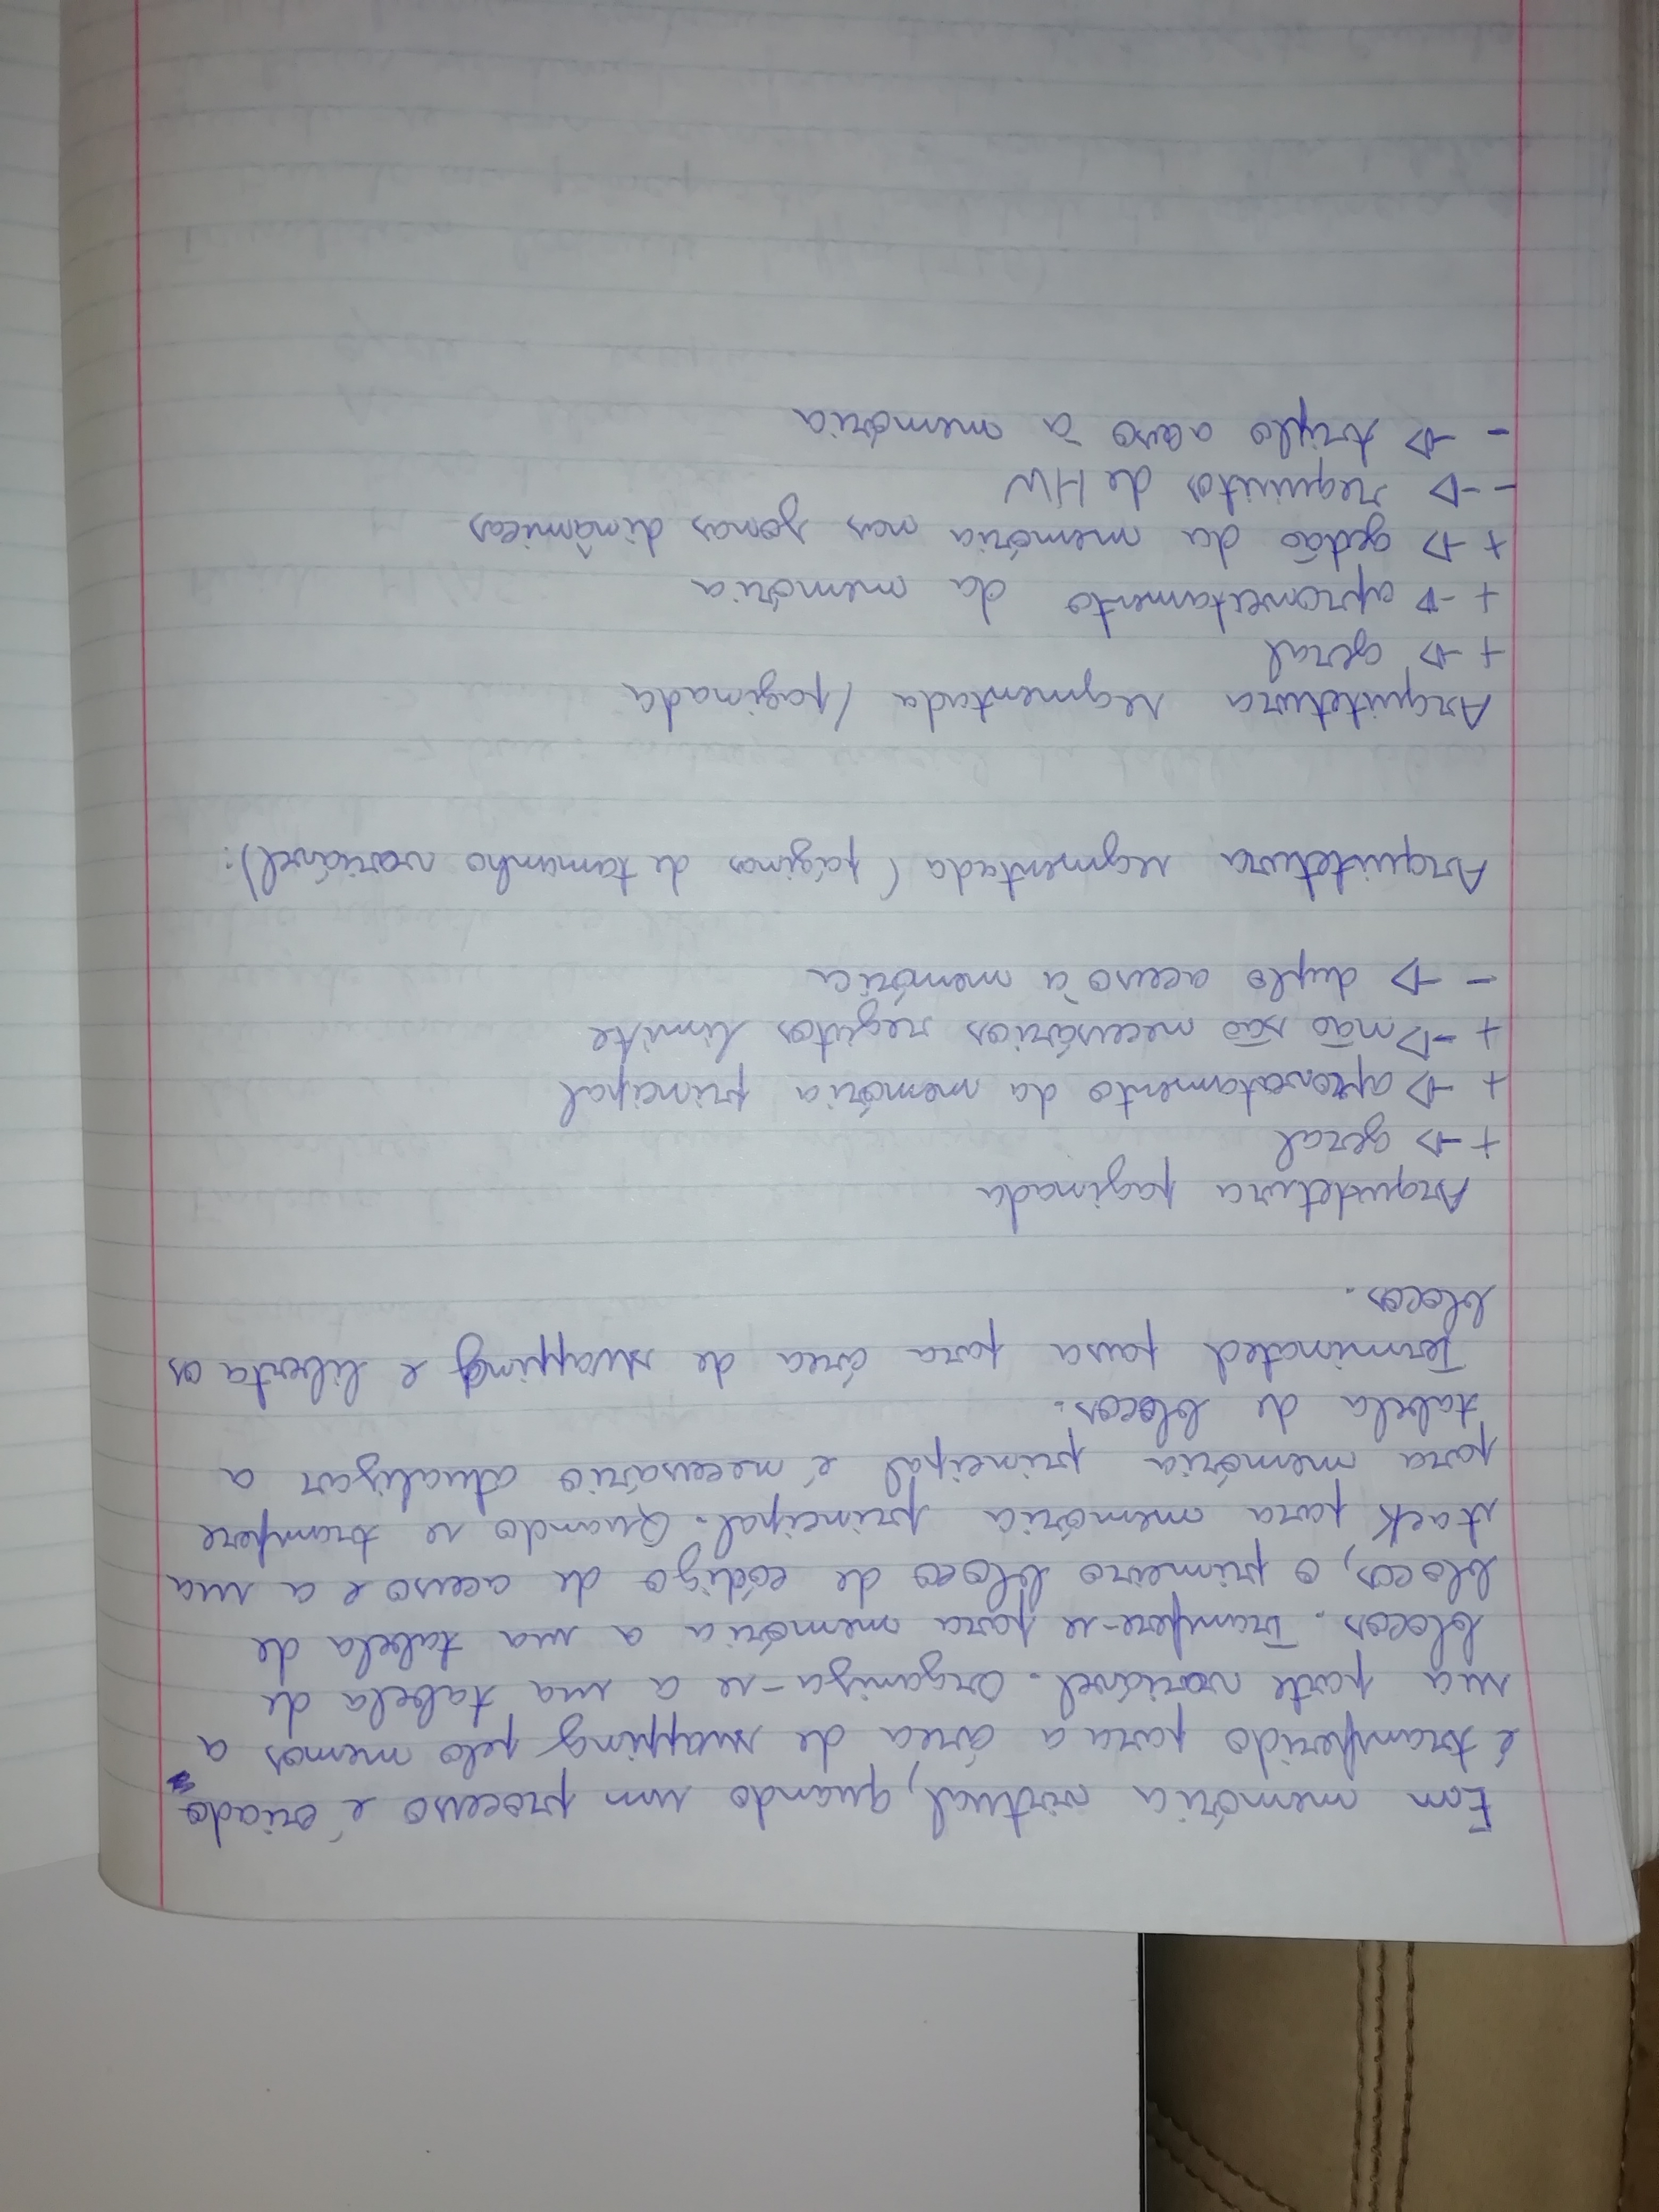 Em memória virtual, quando um processo é criado,
é transferido para a área de swapping pelo menos a
sua parte variável. Organiza-se a sua tabela de
blocos. Transfere-se para memória a sua tabela de
blocos, o primeiro bloco de código de acesso e a sua
stack para memória principal. Quando se transfere
para memória principal é necessário atualizar a
tabela de blocos.
Terminated passa para área de swapping e liberta os
blocos.
Arquitetura paginada
+ -> geral
+ -> aproveitamento da memória principal
+ -> não são necessários registos limite
- -> duplo acesso à memória
Arquitetura segmentada (páginas de tamanho variável):
Arquitetura segmentada / paginada
+ -> geral
+ -> aproveitamento da memória
+ -> gestão da memória nas zonas dinâmicas
- -> requisitos de HW
- -> triplo acesso à memória